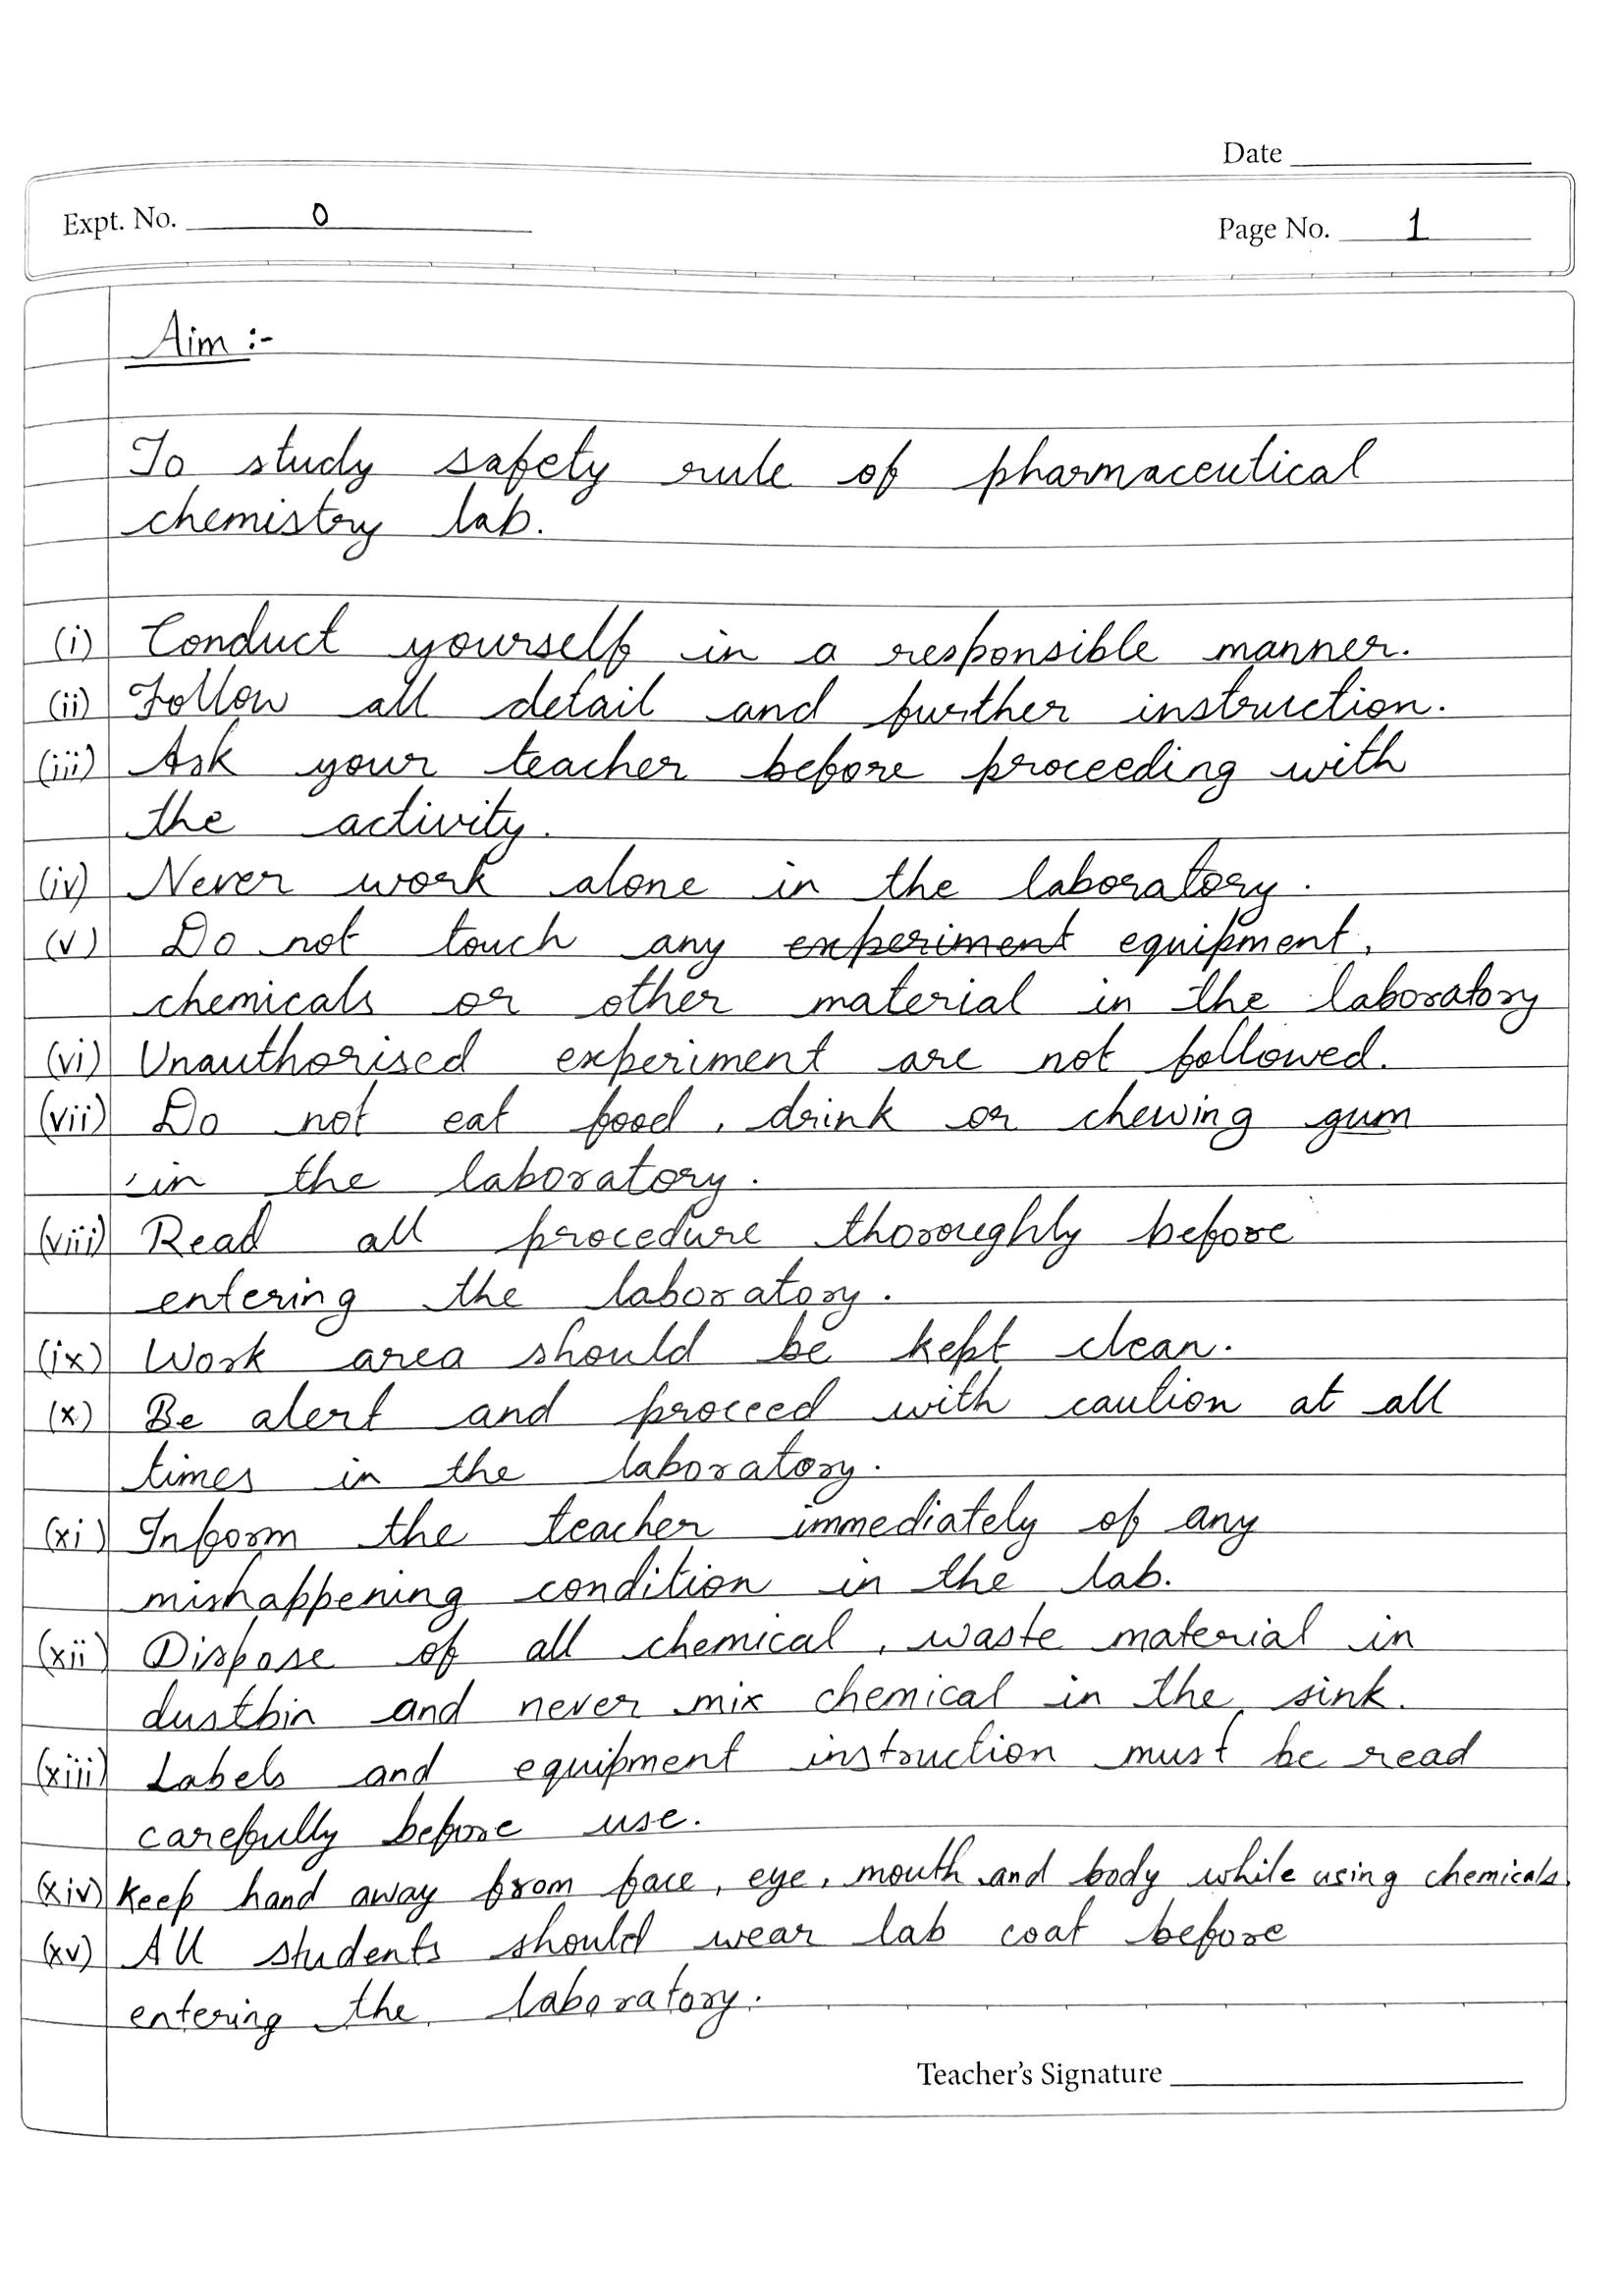 Date
Expt. No. 0
Page No. 1
Aim :-
To study safety rule of pharmaceutical
chemistry lab.
(i) Conduct yourself in a responsible manner.
(ii) Follow all detail and further instruction.
(iii) Ask your teacher before proceeding with
the activity.
(iv) Never work alone in the laboratory.
(v) Do not touch any experiment equipment,
chemicals or other material in the laboratory
(vi) Unauthorised experiment are not followed.
(vii) Do not eat food, drink or chewing gum
in the laboratory.
(viii) Read all procedure thoroughly before
entering the laboratory.
(ix) Work area should be kept clean.
(x) Be alert and proceed with caution at all
times in the laboratory.
(xi) Inform the teacher immediately of any
mishappening condition in the lab.
(xii) Dispose of all chemical, waste material in
dustbin and never mix chemical in the sink.
(xiii) Labels and equipment instruction must be read
carefully before use.
(xiv) Keep hand away from face, eye, mouth and body while using chemicals.
(xv) All students should wear lab coat before
entering the laboratory.
Teacher's Signature